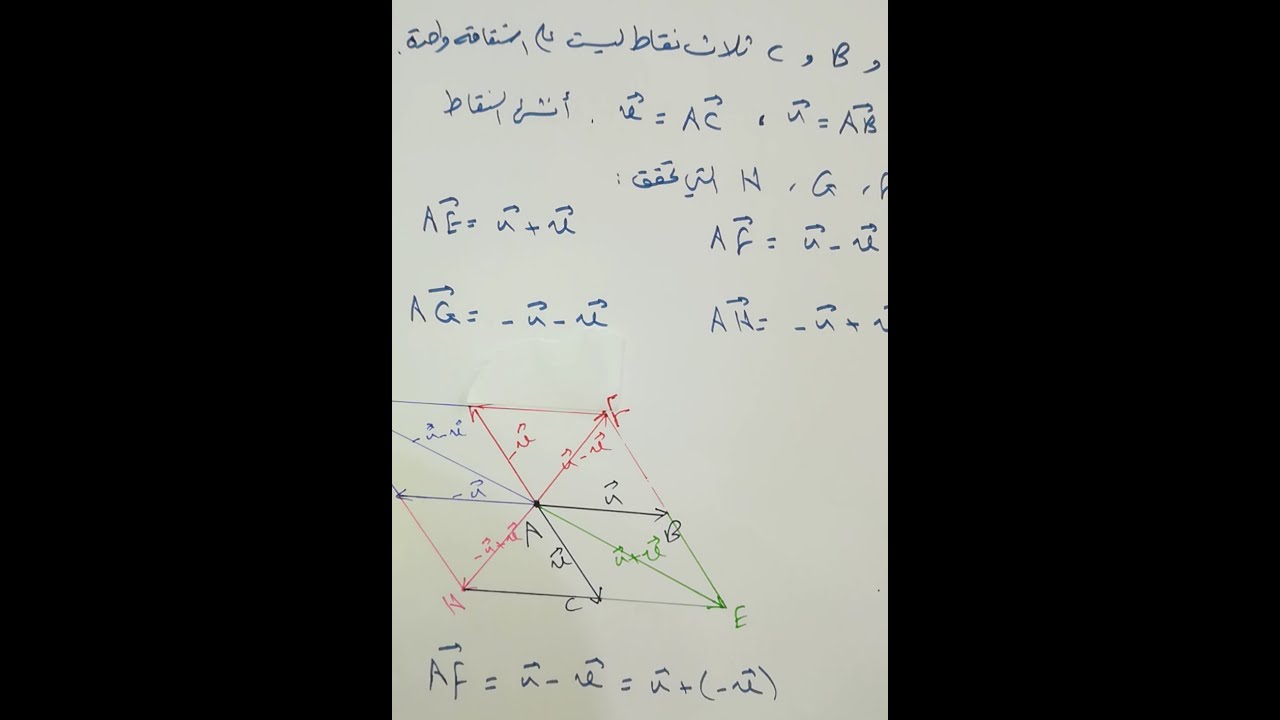 و B و C ثلاث نقاط ليست على استقامة واحدة.
u⃗ = AB⃗ ، v⃗ = AC⃗ . أنشئ النقاط
G ، H التي تحقق :
AE⃗ = u⃗ + v⃗
AF⃗ = u⃗ - v⃗
AG⃗ = -u⃗ - v⃗
AH⃗ = -u⃗ + v⃗
F
-u⃗-v⃗
-v⃗
u⃗-v⃗
-u⃗
u⃗
A
B
-u⃗+v⃗
v⃗
u⃗+v⃗
H
C
E
AF⃗ = u⃗ - v⃗ = u⃗ + (-v⃗)